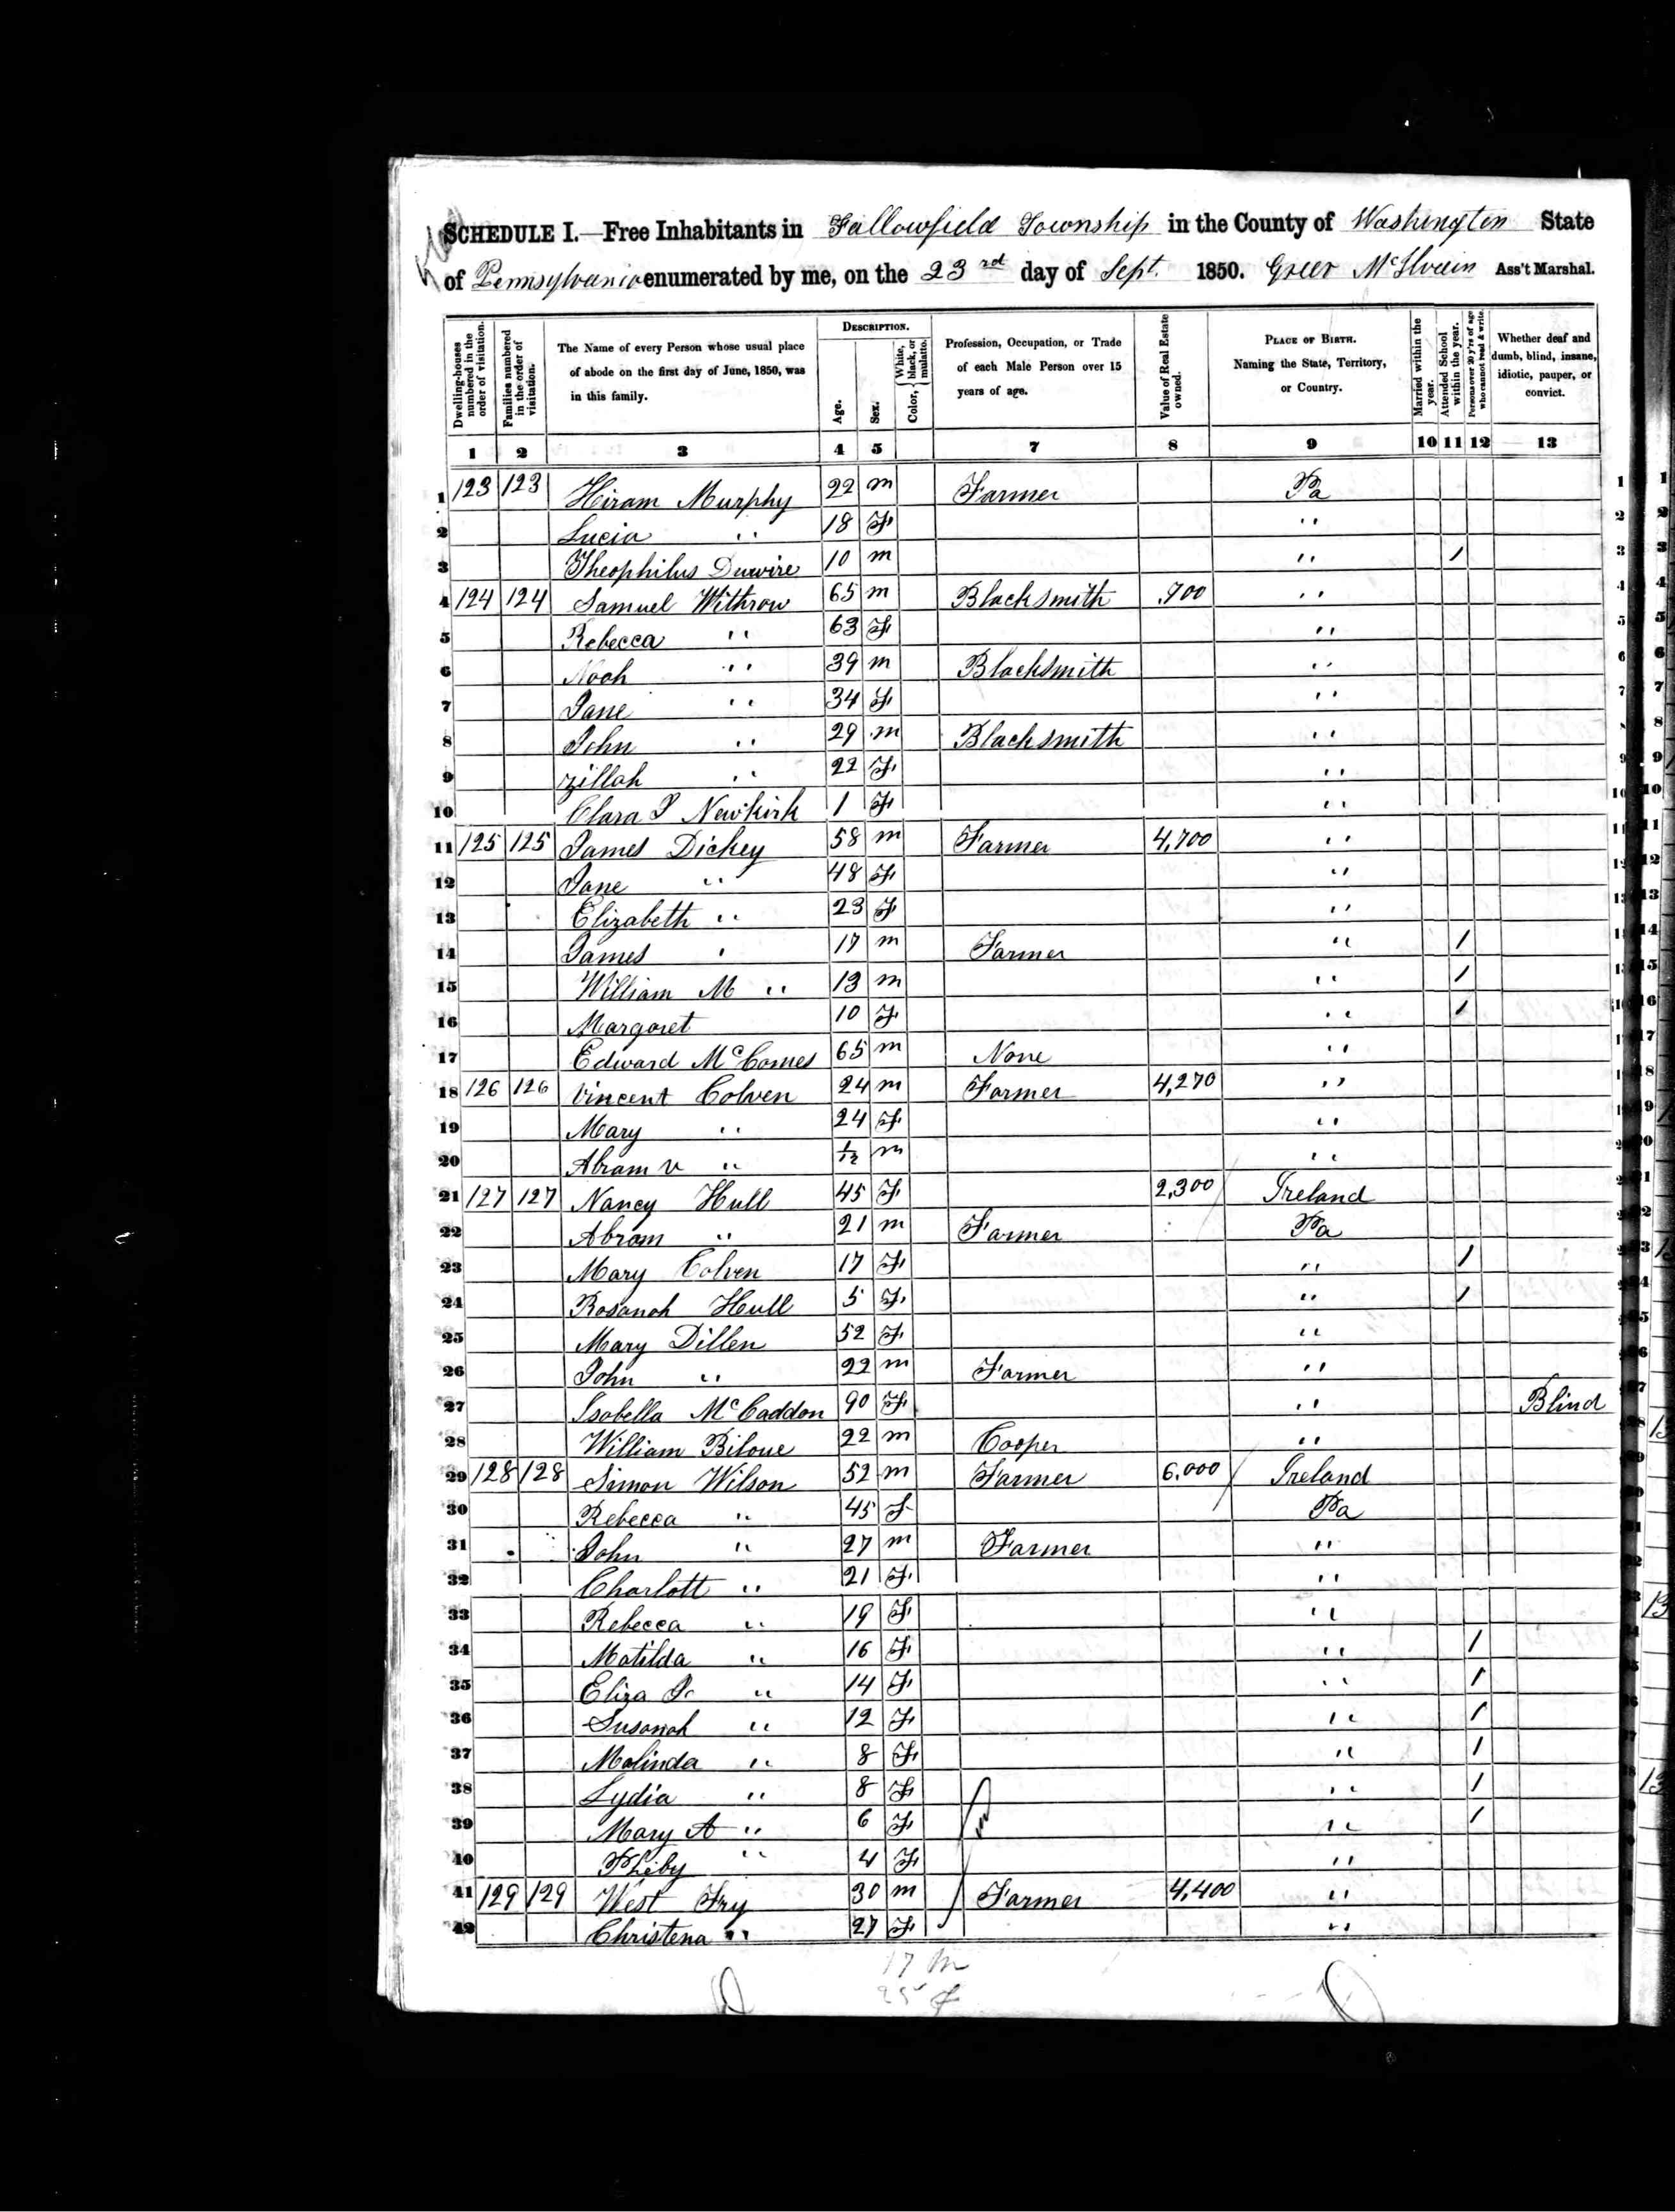 SCHEDULE I.—Free Inhabitants in Fallowfield Township in the County of Washington State
of Pennsylvania enumerated by me, on the 23rd day of Sept. 1850. Greer McIlvain Ass't Marshal.
Dwelling-houses numbered in the order of visitation.
Families numbered in the order of visitation.
The Name of every Person whose usual place of abode on the first day of June, 1850, was in this family.
DESCRIPTION.
Age.
Sex.
Color, { White, black, or mulatto.
Profession, Occupation, or Trade of each Male Person over 15 years of age.
Value of Real Estate owned.
PLACE OF BIRTH. Naming the State, Territory, or Country.
Married within the year.
Attended School within the year.
Persons over 20 y'rs of age who cannot read & write.
Whether deaf and dumb, blind, insane, idiotic, pauper, or convict.
1 2 3 4 5 7 8 9 10 11 12 13
1 123 123 Hiram Murphy 22 m Farmer Pa 1
2 Lucia " 18 F " 2
3 Theophilus Duwire 10 m " 1 3
4 124 124 Samuel Withrow 65 m Blacksmith 700 " 4
5 Rebecca " 63 F " 5
6 Noah " 39 m Blacksmith " 6
7 Jane " 34 F " 7
8 John " 29 m Blacksmith " 8
9 Zillah " 22 F " 9
10 Clara J Newkirk 1 F " 10
11 125 125 James Dickey 58 m Farmer 4,700 " 11
12 Jane " 48 F " 12
13 Elizabeth " 23 F " 13
14 James " 17 m Farmer " 1 14
15 William M " 13 m " 1 15
16 Margaret 10 F " 1 16
17 Edward McComes 65 m None " 17
18 126 126 Vincent Colven 24 m Farmer 4,270 " 18
19 Mary " 24 F " 19
20 Abram V " 1/12 m " 20
21 127 127 Nancy Hull 45 F 2,300 / Ireland 21
22 Abram " 21 m Farmer Pa 22
23 Mary Colven 17 F " 1 23
24 Rosanah Hull 5 F " 1 24
25 Mary Dillen 52 F " 25
26 John " 22 m Farmer " 26
27 Isabella McCaddon 90 F " Blind 27
28 William Biloue 22 m Cooper "
29 128 128 Simon Wilson 52 m Farmer 6,000 / Ireland
30 Rebecca " 45 F Pa
31 John " 27 m Farmer "
32 Charlott " 21 F "
33 Rebecca " 19 F "
34 Matilda " 16 F " 1
35 Eliza J. " 14 F " 1
36 Susanah " 12 F " 1
37 Malinda " 8 F " 1
38 Lydia " 8 F " 1
39 Mary A " 6 F " 1
40 Pheby " 4 F "
41 129 129 West Fry 30 m Farmer 4,400 "
42 Christena " 27 F "
17 m
25 F